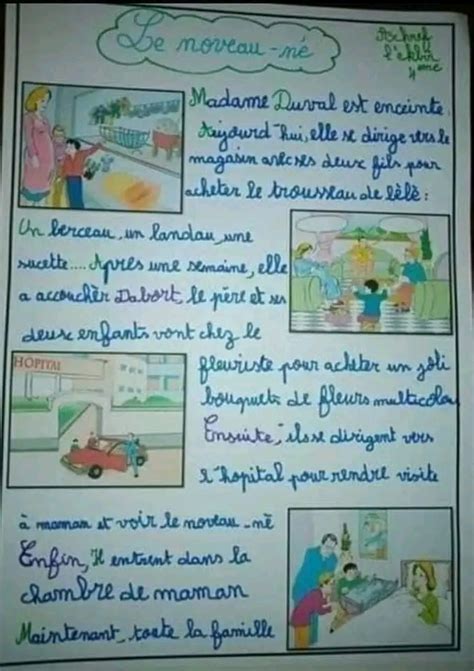 Le noveau-né
Aschref
4 eme
Madame Duval est enceinte.
Aujourd'hui, elle se dirige vers le
magasin avec ses deux fils pour
acheter le trousseau de bèbè :
Un berceau, un landau, une
sucette.... Après une semaine, elle
a accouchèr Dabort, le père et ses
deux enfants vont chez le
HOPITAL
fleuriste pour acheter un joli
bouquets de fleurs multicolou
Ensuite, ils se dirigent vers
l'hopital pour rendre visite
à maman et voir le noveau-né
Enfin, Il entrent dans la
chambre de maman
Maintenant, toute la famille